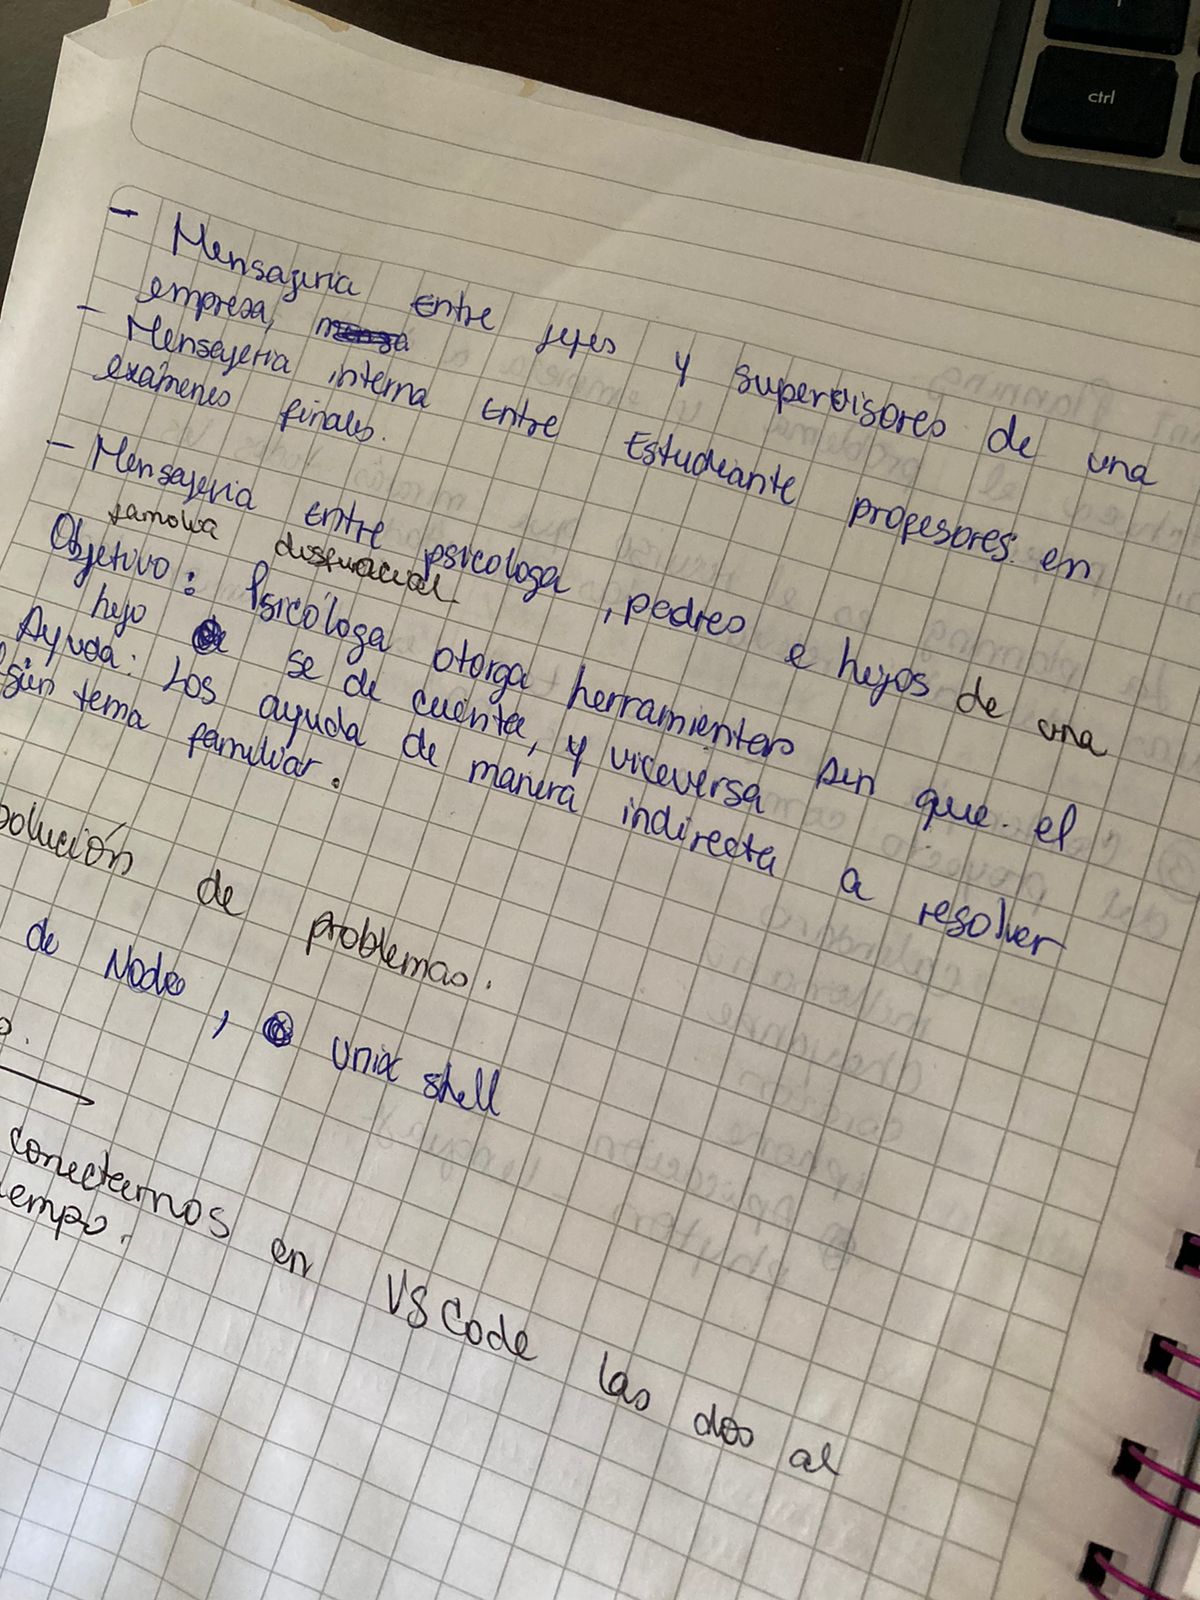 ctrl
- Mensajeria entre jefes y supervisores de una
empresa,
- Mensajeria interna entre Estudiante profesores en
exámenes finales.
- Mensajeria entre psicologa, padres e hijos de una
familia disfuncional
Objetivo: Psicóloga otorga herramientas sin que el
hijo se de cuenta, y viceversa
Ayuda: Los ayuda de manera indirecta a resolver
gún tema familiar.
olución de problemas.
de Node, Unix shell
conectarnos en VSCode las dos al
empo.